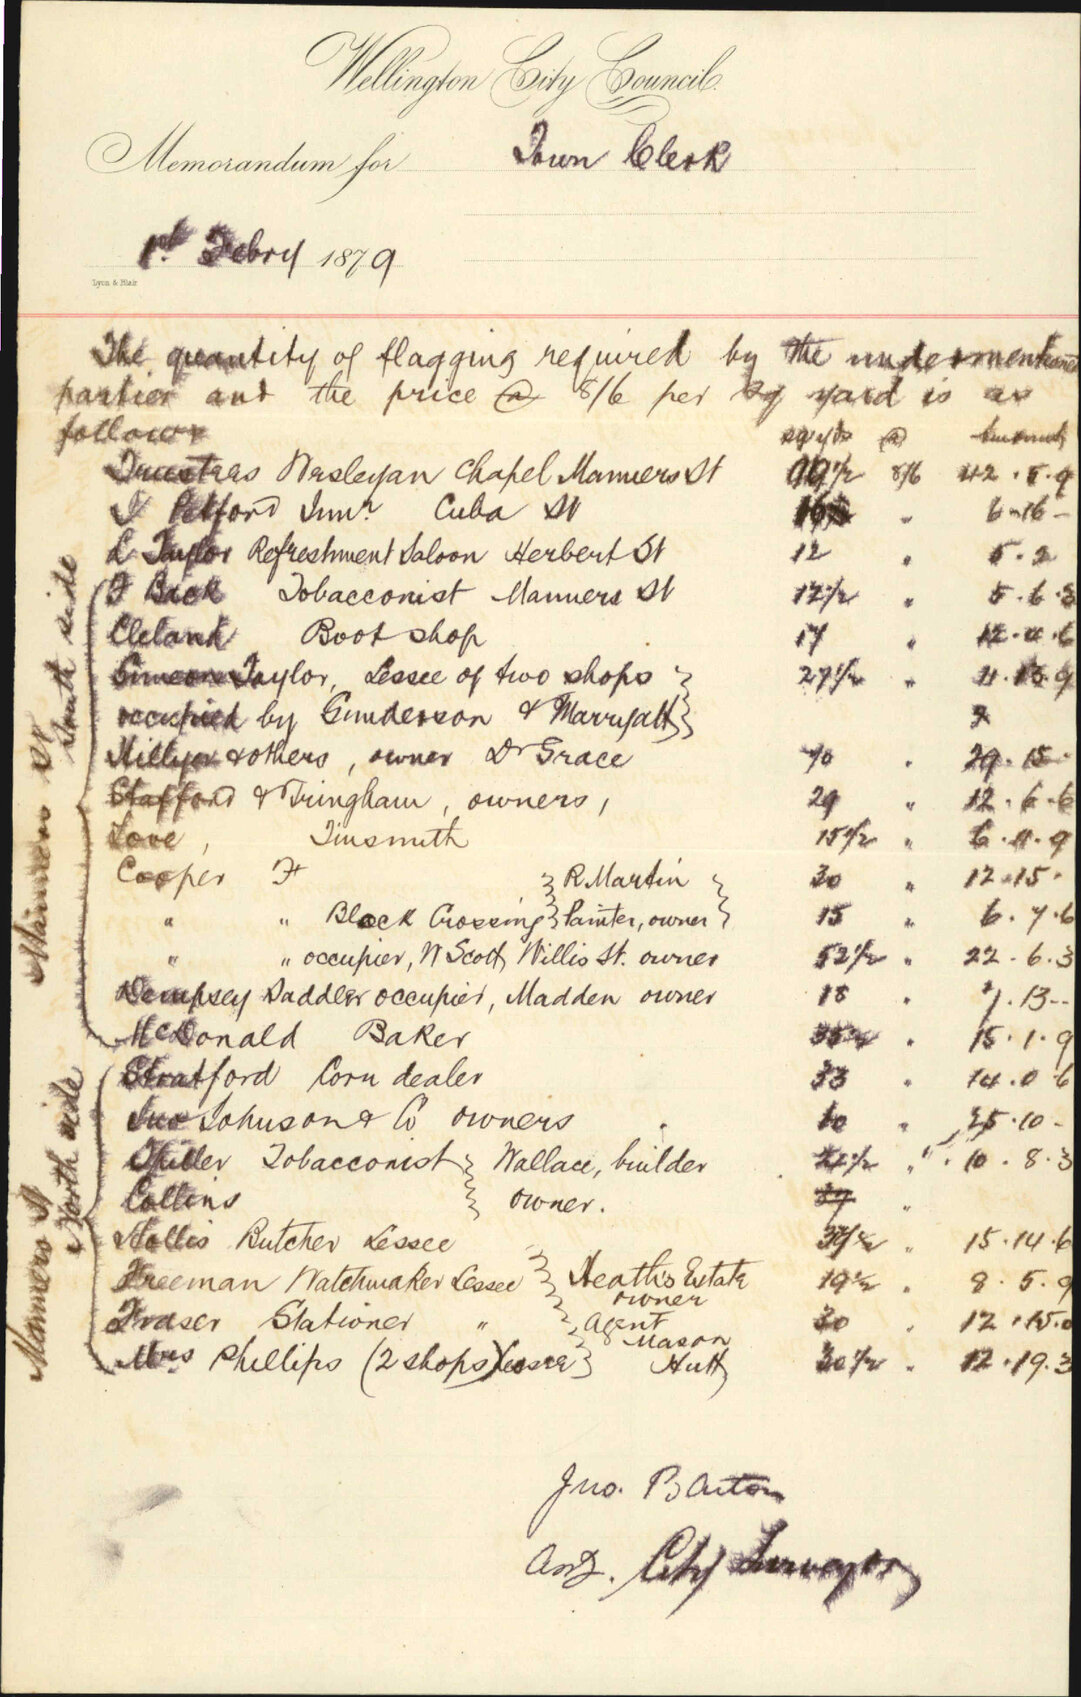 Wellington City Council.
Memorandum for Town Clerk
1st Febry 1879
Lyon & Blair
The quantity of flagging required by the undermentioned
parties and the price @ 8/6 per sq yard is as
follows
sq yds @ amount
Trustees Wesleyan Chapel Manners St 99 1/2 8/6 42 . 5 . 9
Petford Junr. Cuba St 16 " 6 - 16 -
L Taylor Refreshment Saloon Herbert St 12 " 5 . 2
Manners St South side
Back Tobacconist Manners St 12 1/2 " 5 . 6 . 3
Cleland Boot shop "
Simeon Taylor, Lessee of two shops 27 1/2 " 11 . 13 . 9
occupied by Gunderson & Marryatt
Hillyer & others, owner Dr Grace 70 " 29 . 15 -
Stafford & Tringham, owners, 29 " 12 . 6 . 6
Love, Tinsmith 15 1/2 " 6 . 11 . 9
Cooper F R. Martin 30 " 12 . 15 .
" " Block Crossing Painter, owner 15 " 6 . 7 . 6
" " occupier, W Scott, Willis St. owner 52 1/2 " 22 . 6 . 3
Dempsey Saddler occupier, Madden owner 18 " 7 . 13 -
McDonald Baker 35 1/2 " 15 . 1 . 9
Manners St North side
Stratford Corn dealer 33 " 14 . 0 . 6
Jno Johnson & Co owners " 25 . 10 -
Tobacconist Wallace, builder " 10 . 8 . 3
Collins owner. "
Hollis Butcher Lessee 37 " 15 . 14 . 6
Freeman Watchmaker Lessee Heath's Estate 19 1/2 " 8 . 5 . 9
owner
Fraser Stationer " agent 30 " 12 . 15 . 0
Mason
Mrs Phillips (2 shops) Lessee Hutt 30 1/2 " 12 . 19 . 3
Jno. Barton
City Surveyor